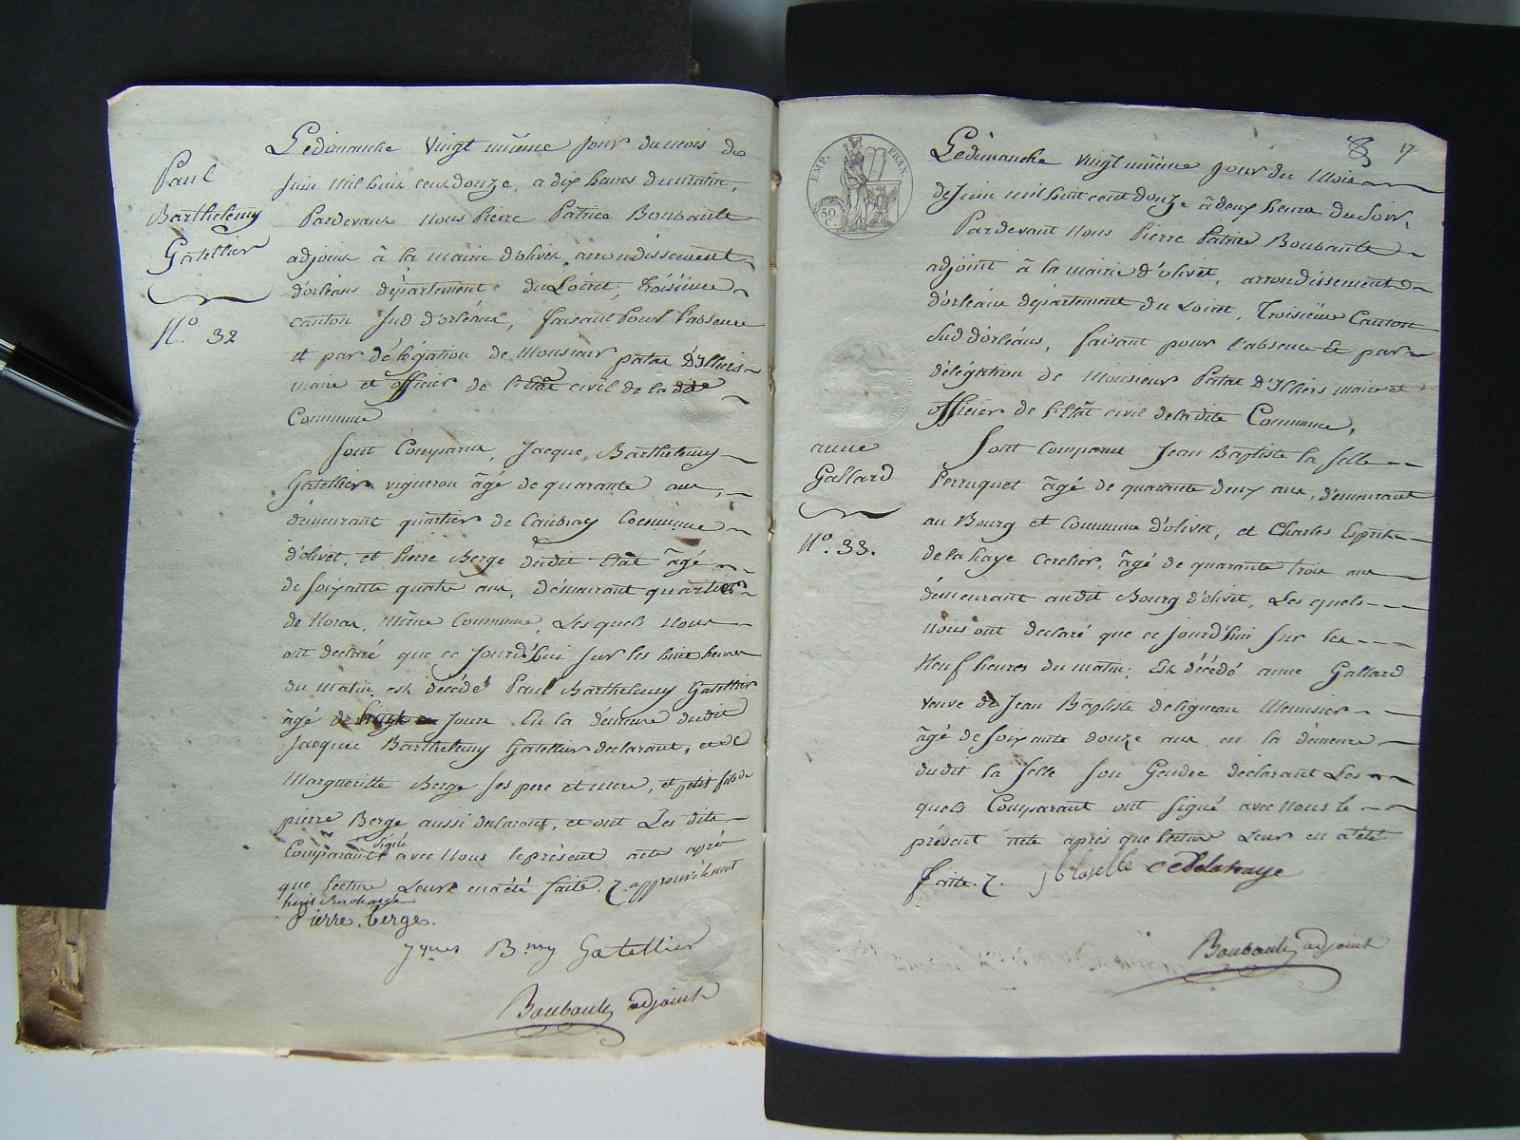 Paul
Barthelemy
Gatellier
N.o 32
Le dimanche vingt unième jour du mois de
Juin mil huit cent douze, a dix heures du matin,
Pardevant nous Pierre Patrice Boubault
adjoint à la mairie d'olivet, arrondissement
d'orléans département du Loiret, troisième
canton sud d'orléans, faisant pour l'absence
et par délégation de Monsieur patas d'Illiers
maire et officier de l'état civil de la dite
Commune
Sont Comparus, Jacque Barthelemy
Gatellier vigneron âgé de quarante ans,
demeurant quartier de Caubray Commune
d'olivet, et Pierre Berge dudit état âgé
de soixante quatre ans, demeurant quartier
de Noras, même Commune, Les quels nous
ont declaré que ce jourd'hui sur les huit heures
du matin est décédé Paul Barthelemy Gatellier
âgé de jours En la demeure dudit
Jacque Barthelemy Gatellier declarant, et de
Marguerite Berge ses pere et mere, et petit fils de
pierre Berge aussi declarant, et ont Les dits
Comparants signé avec Nous le présent acte après
que lecture Leur en a été faite. approuvé huit
Pierre. berge.
Jques Bmy Gatellier
Boubault adjoint
17
EMP. FRAN.
50 C.
anne
Gallard
N.o 33.
Le dimanche vingt unième jour du Mois
de Juin mil huit cent douze à deux heures du Soir,
Pardevant Nous Pierre Patrice Boubault
adjoint à la mairie d'olivet, arrondissement
d'orléans département du Loiret, Troisième Canton
Sud d'orléans, faisant pour l'absence Et par
délégation de Monsieur Patas D'Illiers maire et
officier de l'Etât civil de la dite Commune,
Sont comparus Jean Baptiste la selle
Perruquet âgé de quarante deux ans, demeurant
au Bourg et Commune d'olivet, et Charles Esprit
de la haye Cerclier, âgé de quarante trois ans
demeurant au dit Bourg d'olivet, Les quels
Nous ont declaré que ce jourd'hui sur les
Neuf heures du matin; Est décédé anne Gallard
veuve de Jean Baptiste deligneau Menuisier
âgé de soixante douze ans en la demeure
dudit la selle son Gendre declarant Les
quels Comparant ont signé avec Nous le
présent acte après que lecture Leur en a été
faite. jb laselle c e delahaye
Boubault adjoint